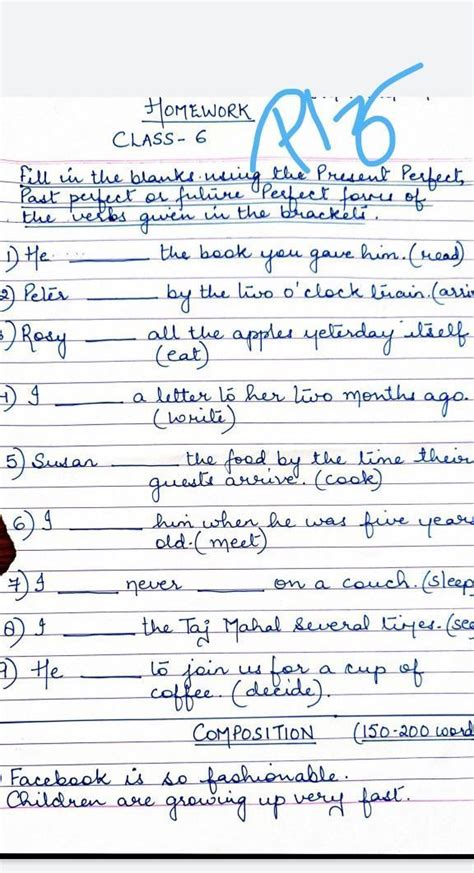 HOMEWORK
CLASS- 6
Fill in the blanks using the Present Perfect,
Past perfect or future Perfect forms of
the verbs given in the brackets.
1) He ______ the book you gave him. (read)
2) Peter ______ by the two o'clock train. (arriv
) Rosy ______ all the apples yesterday itself
(eat)
4) I ______ a letter to her two months ago.
(write)
5) Susan ______ the food by the time their
guests arrive. (cook)
6) I ______ him when he was five years
old. (meet)
7) I ______ never ______ on a couch. (sleep
8) I ______ the Taj Mahal several times. (see
9) He ______ to join us for a cup of
coffee. (decide).
COMPOSITION (150-200 word
Facebook is so fashionable.
Children are growing up very fast.